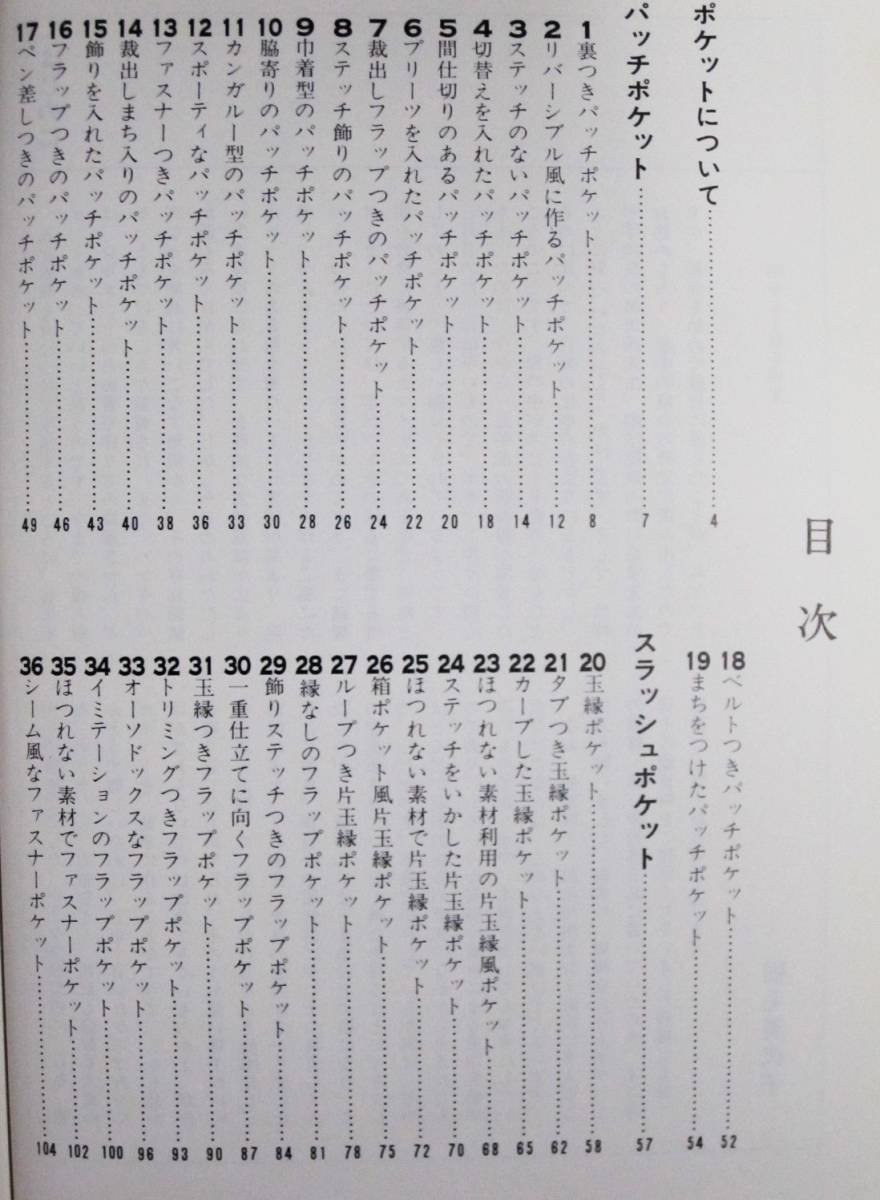 目次
ポケットについて……4
パッチポケット……7
1 裏つきパッチポケット……8
2 リバーシブル風に作るパッチポケット……12
3 ステッチのないパッチポケット……14
4 切替えを入れたパッチポケット……18
5 間仕切りのあるパッチポケット……20
6 プリーツを入れたパッチポケット……22
7 裁出しフラップつきのパッチポケット……24
8 ステッチ飾りのパッチポケット……26
9 巾着型のパッチポケット……28
10 脇寄りのパッチポケット……30
11 カンガルー型のパッチポケット……33
12 スポーティなパッチポケット……36
13 ファスナーつきパッチポケット……38
14 裁出しまち入りのパッチポケット……40
15 飾りを入れたパッチポケット……43
16 フラップつきのパッチポケット……46
17 ペン差しつきのパッチポケット……49
18 ベルトつきパッチポケット……52
19 まちをつけたパッチポケット……54
スラッシュポケット……57
20 玉縁ポケット……58
21 タブつき玉縁ポケット……62
22 カーブした玉縁ポケット……65
23 ほつれない素材利用の片玉縁風ポケット……68
24 ステッチをいかした片玉縁ポケット……70
25 ほつれない素材で片玉縁ポケット……72
26 箱ポケット風片玉縁ポケット……75
27 ループつき片玉縁ポケット……78
28 縁なしのフラップポケット……81
29 飾りステッチつきのフラップポケット……84
30 一重仕立てに向くフラップポケット……87
31 玉縁つきフラップポケット……90
32 トリミングつきフラップポケット……93
33 オーソドックスなフラップポケット……96
34 イミテーションのフラップポケット……100
35 ほつれない素材でファスナーポケット……102
36 シーム風なファスナーポケット……104